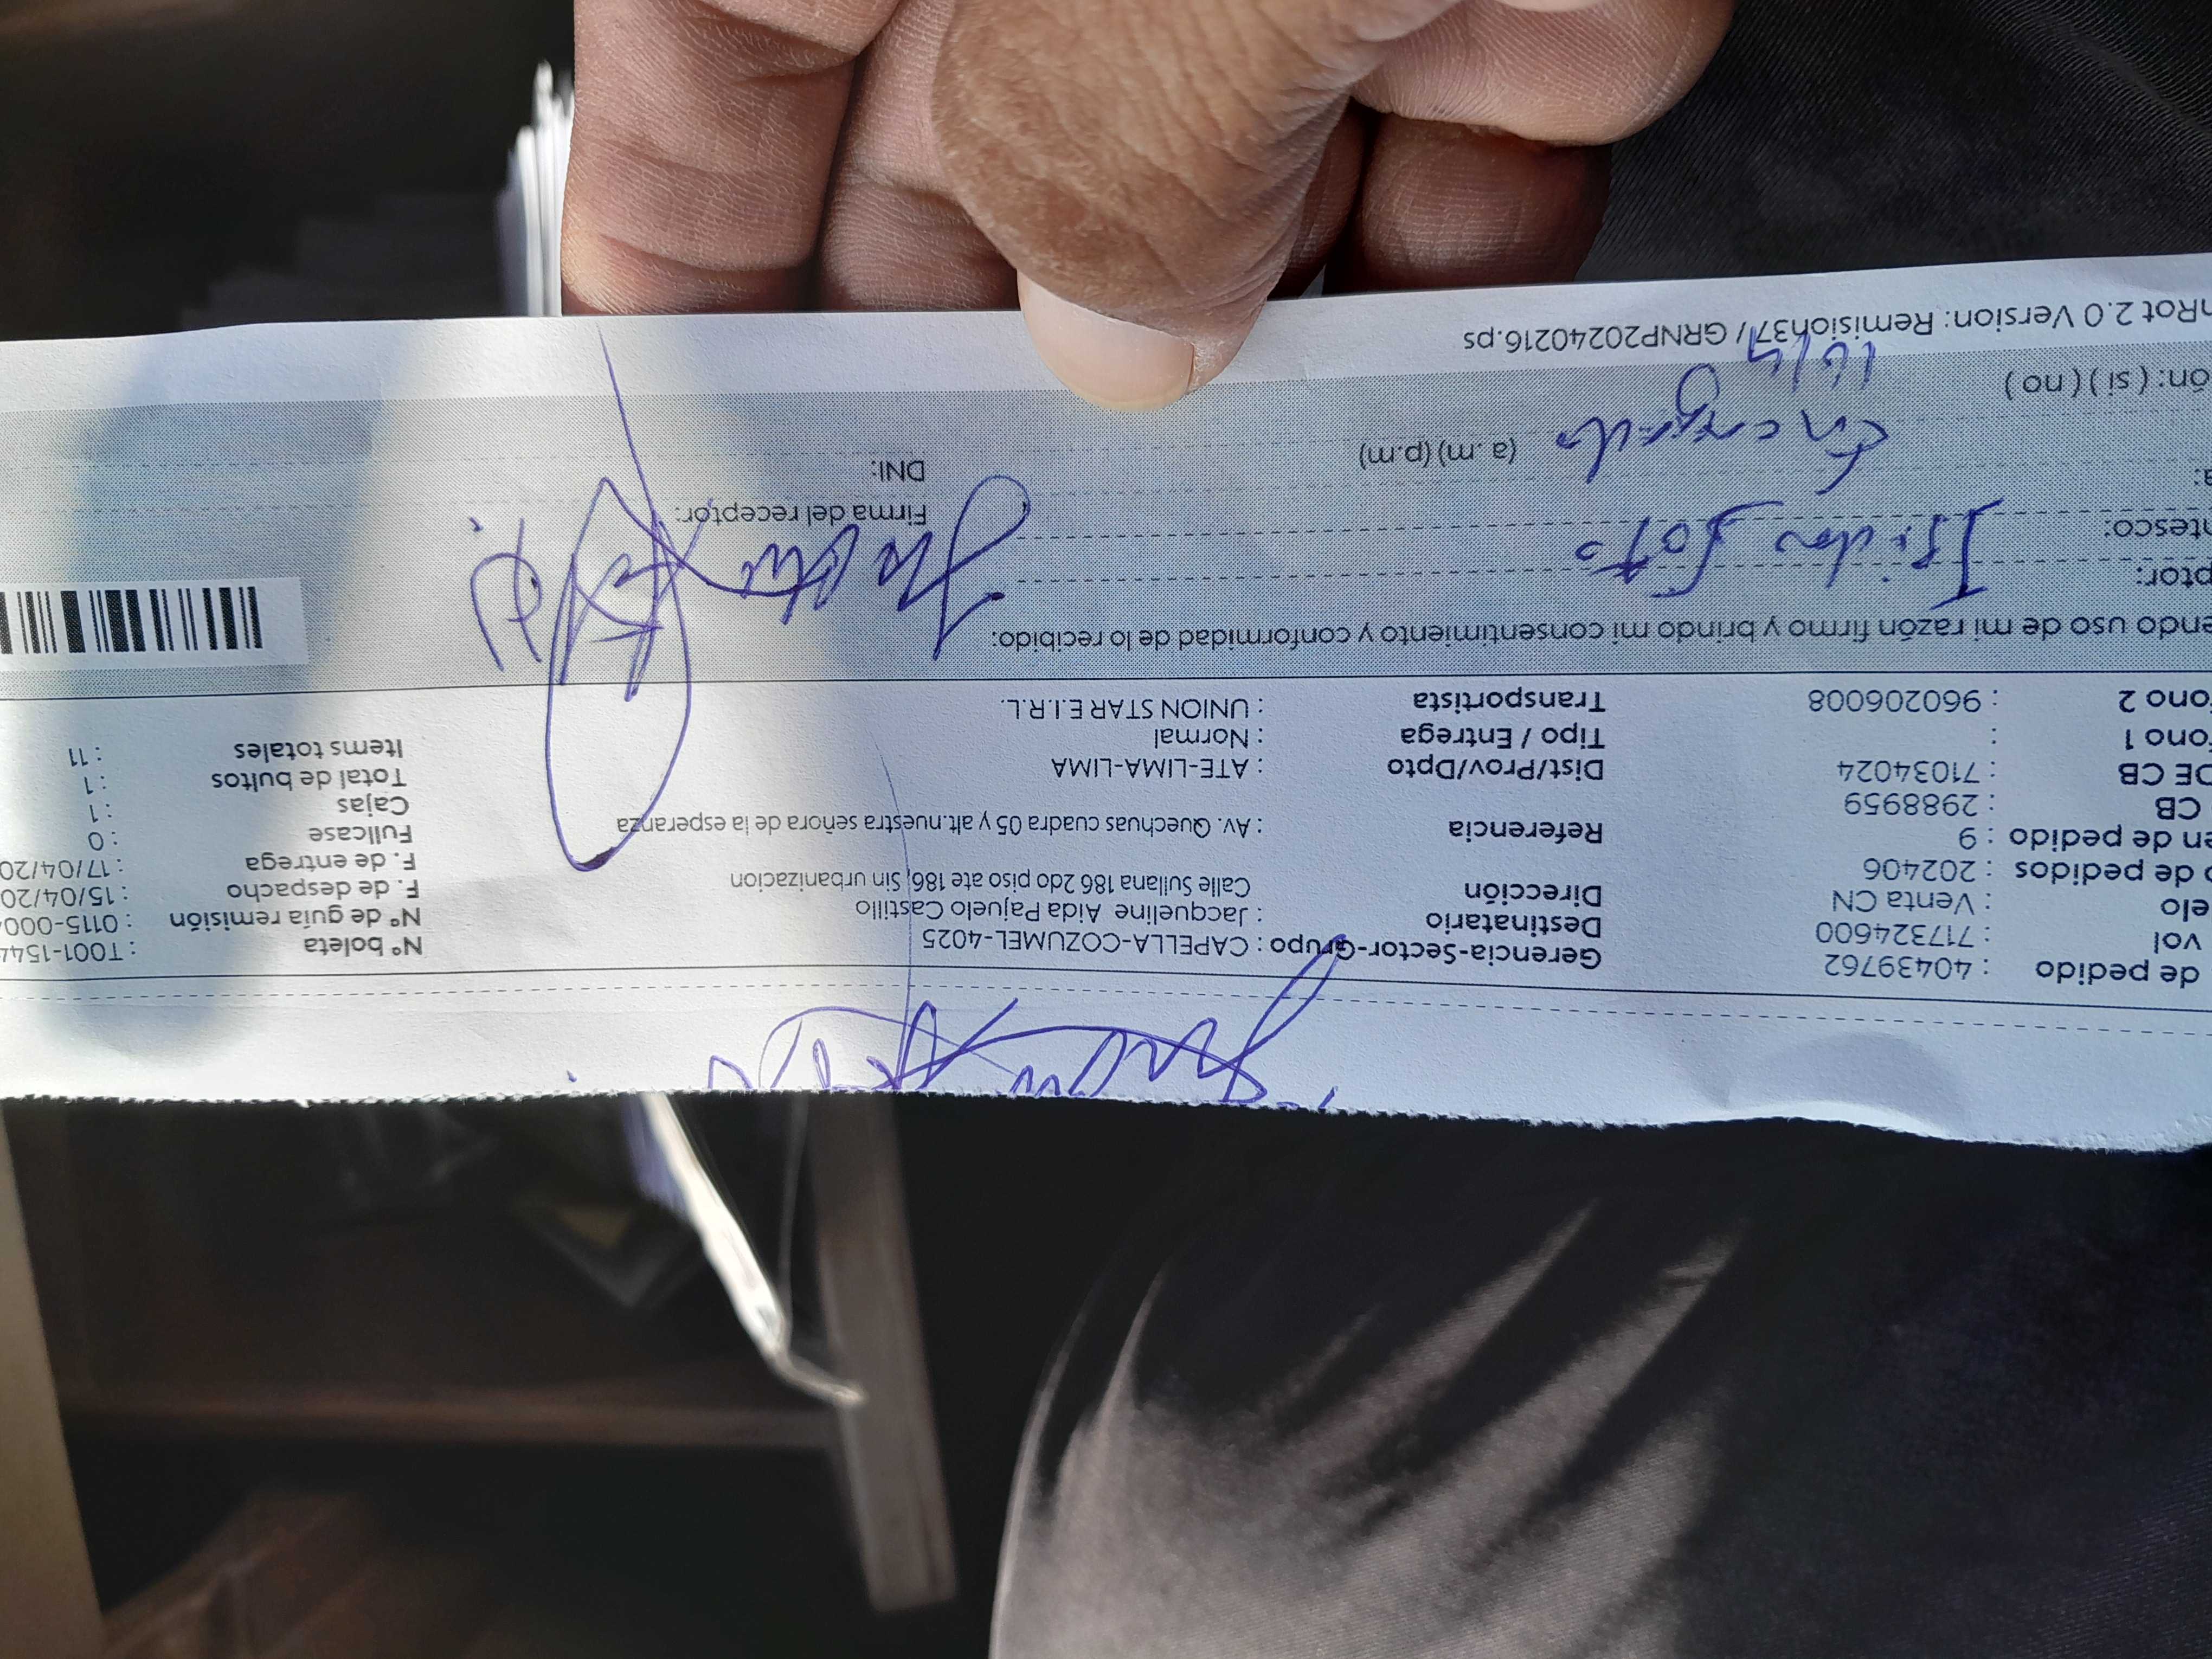 de pedido : 40439762 Gerencia-Sector-Grupo : CAPELLA-COZUMEL-4025 Nº boleta : T001-1544
vol : 717324600 Destinatario : Jacqueline Aida Pajuelo Castillo Nº de guía remisión : 0115-000
elo : Venta CN Dirección Calle Sullana 186 2do piso ate 186, Sin urbanizacion F. de despacho : 15/04/20
de pedidos : 202406 F. de entrega : 17/04/20
en de pedido : 9 Referencia : Av. Quechuas cuadra 05 y alt.nuestra señora de la esperanza Fullcase : 0
CB : 2988959 Cajas : 1
DE CB : 71034024 Dist/Prov/Dpto : ATE-LIMA-LIMA Total de bultos : 1
ono 1 : Tipo / Entrega : Normal Items totales : 11
ono 2 : 960206008 Transportista : UNION STAR E.I.R.L.
endo uso de mi razón firmo y brindo mi consentimiento y conformidad de lo recibido:
ptor: Isidor Soto
ntesco: Firma del receptor:
a: Encargado (a .m) (p.m) DNI:
ón: ( si ) ( no ) 16/4
Rot 2.0 Version: Remision37 // GRNP20240216.ps